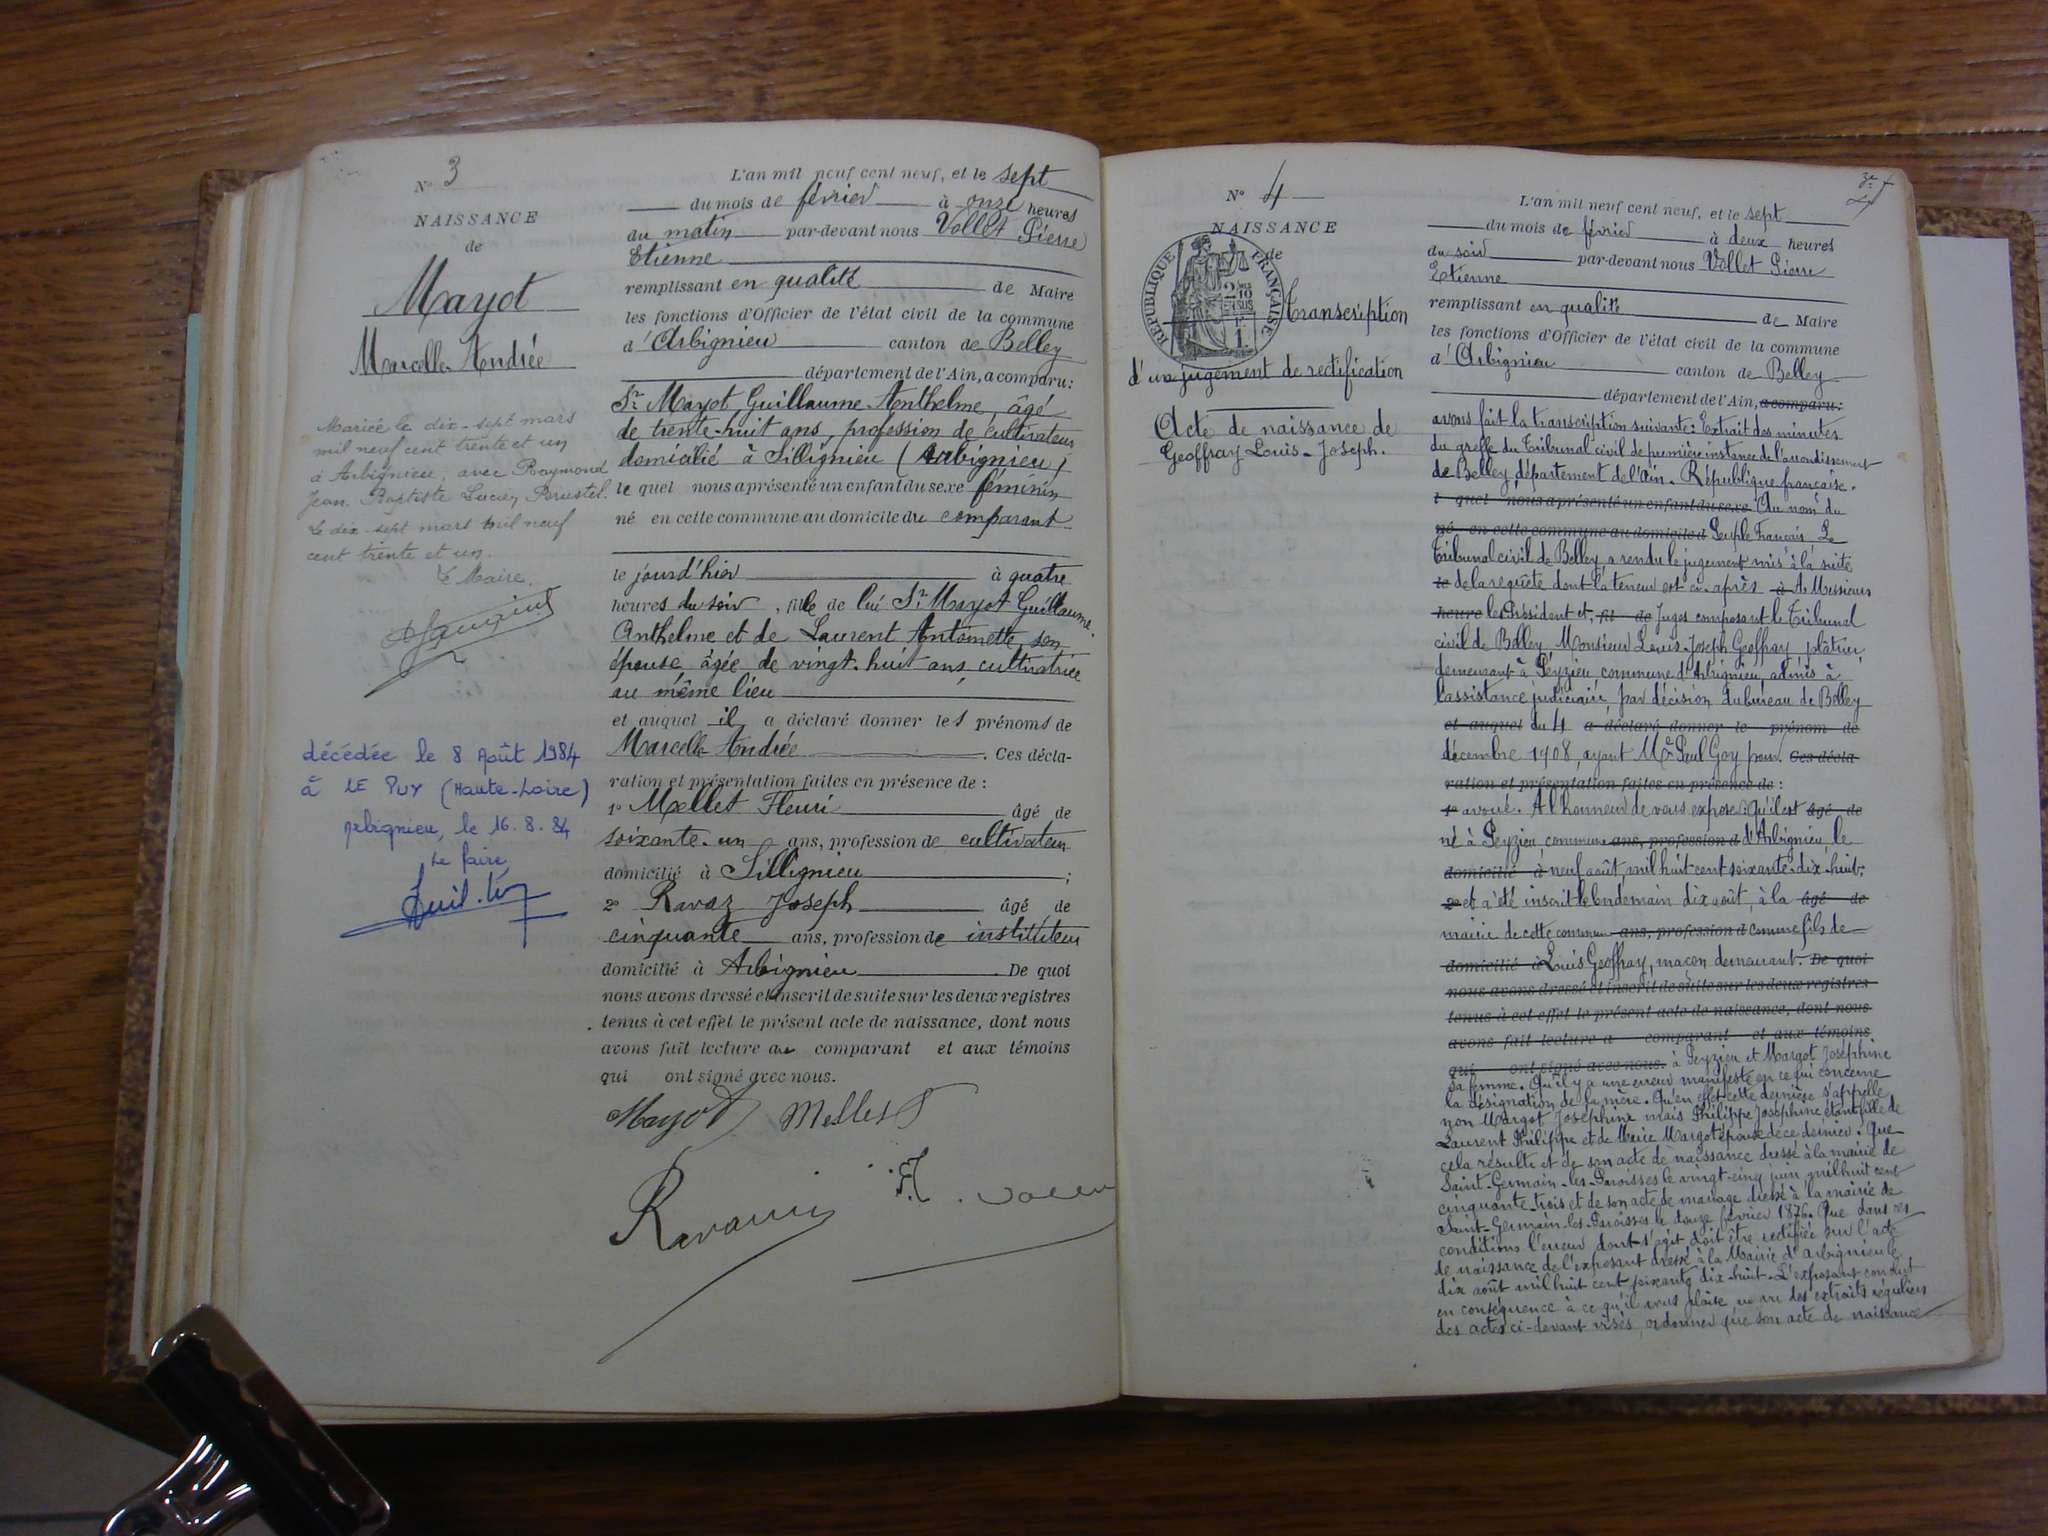 N° 3
NAISSANCE
de
Mayot
Marcelle-Andrée
Mariée le dix-sept mars
mil neuf cent trente et un
à Arbignieu, avec Raymond
Jean Baptiste Lucien
Le dix-sept mars mil neuf
cent trente et un.
Le Maire,
décédée le 8 Août 1984
à LE PUY (Haute-Loire)
Arbignieu, le 16.8.84
Le Maire,
L'an mil neuf cent neuf, et le sept
du mois de février à onze heures
du matin par-devant nous Vollet Pierre
Etienne
remplissant en qualité de Maire
les fonctions d'Officier de l'état civil de la commune
d'Arbignieu canton de Belley
département de l'Ain, a comparu:
Sr Mayot Guillaume-Anthelme, âgé
de trente-huit ans, profession de cultivateur
domicilié à Sillignieu (Arbignieu)
le quel nous a présenté un enfant du sexe féminin
né en cette commune au domicile du comparant
le jour d'hier à quatre
heures du soir, fille de lui Sr Mayot Guillaume-
Anthelme et de Laurent Antoinette, son
épouse, âgée de vingt-huit ans, cultivatrice
au même lieu
et auquel il a déclaré donner les prénoms de
Marcelle-Andrée. Ces décla-
ration et présentation faites en présence de :
1° Mellet Fleuri âgé de
soixante-un ans, profession de cultivateur
domicilié à Sillignieu ;
2° Ravaz Joseph âgé de
cinquante ans, profession de instituteur
domicilié à Arbignieu. De quoi
nous avons dressé et inscrit de suite sur les deux registres
tenus à cet effet le présent acte de naissance, dont nous
avons fait lecture au comparant et aux témoins
qui ont signé avec nous.
Mayot Mellet
N° 4
NAISSANCE
de
RÉPUBLIQUE FRANÇAISE
Transcription
d'un jugement de rectification
Acte de naissance de
Geoffray Louis-Joseph.
L'an mil neuf cent neuf, et le sept
du mois de février à deux heures
du soir par-devant nous Vollet Pierre
Etienne
remplissant en qualité de Maire
les fonctions d'Officier de l'état civil de la commune
d'Arbignieu canton de Belley
département de l'Ain, a comparu:
avons fait la transcription suivante: Extrait des minutes
du greffe du Tribunal civil de première instance de l'arrondissement
de Belley, département de l'Ain. République française.
l quel nous a présenté un enfant du sexe Au nom du
né en cette commune au domicile d Peuple Français, Le
Tribunal civil de Belley a rendu le jugement mis à la suite
le de la requête dont la teneur est ci-après à A Messieurs
heure les Président et, fil de Juges composant le Tribunal
civil de Belley, Monsieur Louis-Joseph Geoffray, plâtrier,
demeurant à Peyzieu, commune d'Arbignieu, admis à
l'assistance judiciaire, par décision du bureau de Belley
et auquel du 4 a déclaré donner le prénom de
décembre 1908, ayant Me Paul Goy pour. Ces décla-
ration et présentation faites en présence de :
1° avoué. A l'honneur de vous exposer: Qu'il est âgé de
né à Peyzieu, commune ans, profession d d'Arbignieu, le
domicilié à neuf août, mil huit cent soixante-dix-huit;
2° et a été inscrit le lendemain dix août, à la âgé de
mairie de cette commune ans, profession d comme fils de
domicilié à Louis Geoffray, maçon demeurant. De quoi
nous avons dressé et inscrit de suite sur les deux registres
tenus à cet effet le présent acte de naissance, dont nous
avons fait lecture a comparant et aux témoins
qui ont signé avec nous. à Peyzieu et Margot Joséphine
sa femme. Qu'il y a une erreur manifeste en ce qui concerne
la désignation de la mère. Qu'en effet cette dernière s'appelle
non Margot Joséphine mais Philippe Joséphine étant fille de
Laurent Philippe et de Marie Margot épouse de ce dernier. Que
cela résulte et de son acte de naissance dressé à la mairie de
Saint-Germain-les-Paroisses le vingt-cinq juin mil huit cent
cinquante-trois et de son acte de mariage dressé à la mairie de
Saint-Germain-les-Paroisses le douze février 1876. Que dans ces
conditions l'erreur dont s'agit doit être rectifiée sur l'acte
de naissance de l'exposant dressé à la Mairie d'Arbignieu le
dix août mil huit cent soixante dix-huit. L'exposant conclut
en conséquence à ce qu'il vous plaise, au vu des extraits réguliers
des actes ci-devant visés, ordonner que son acte de naissance